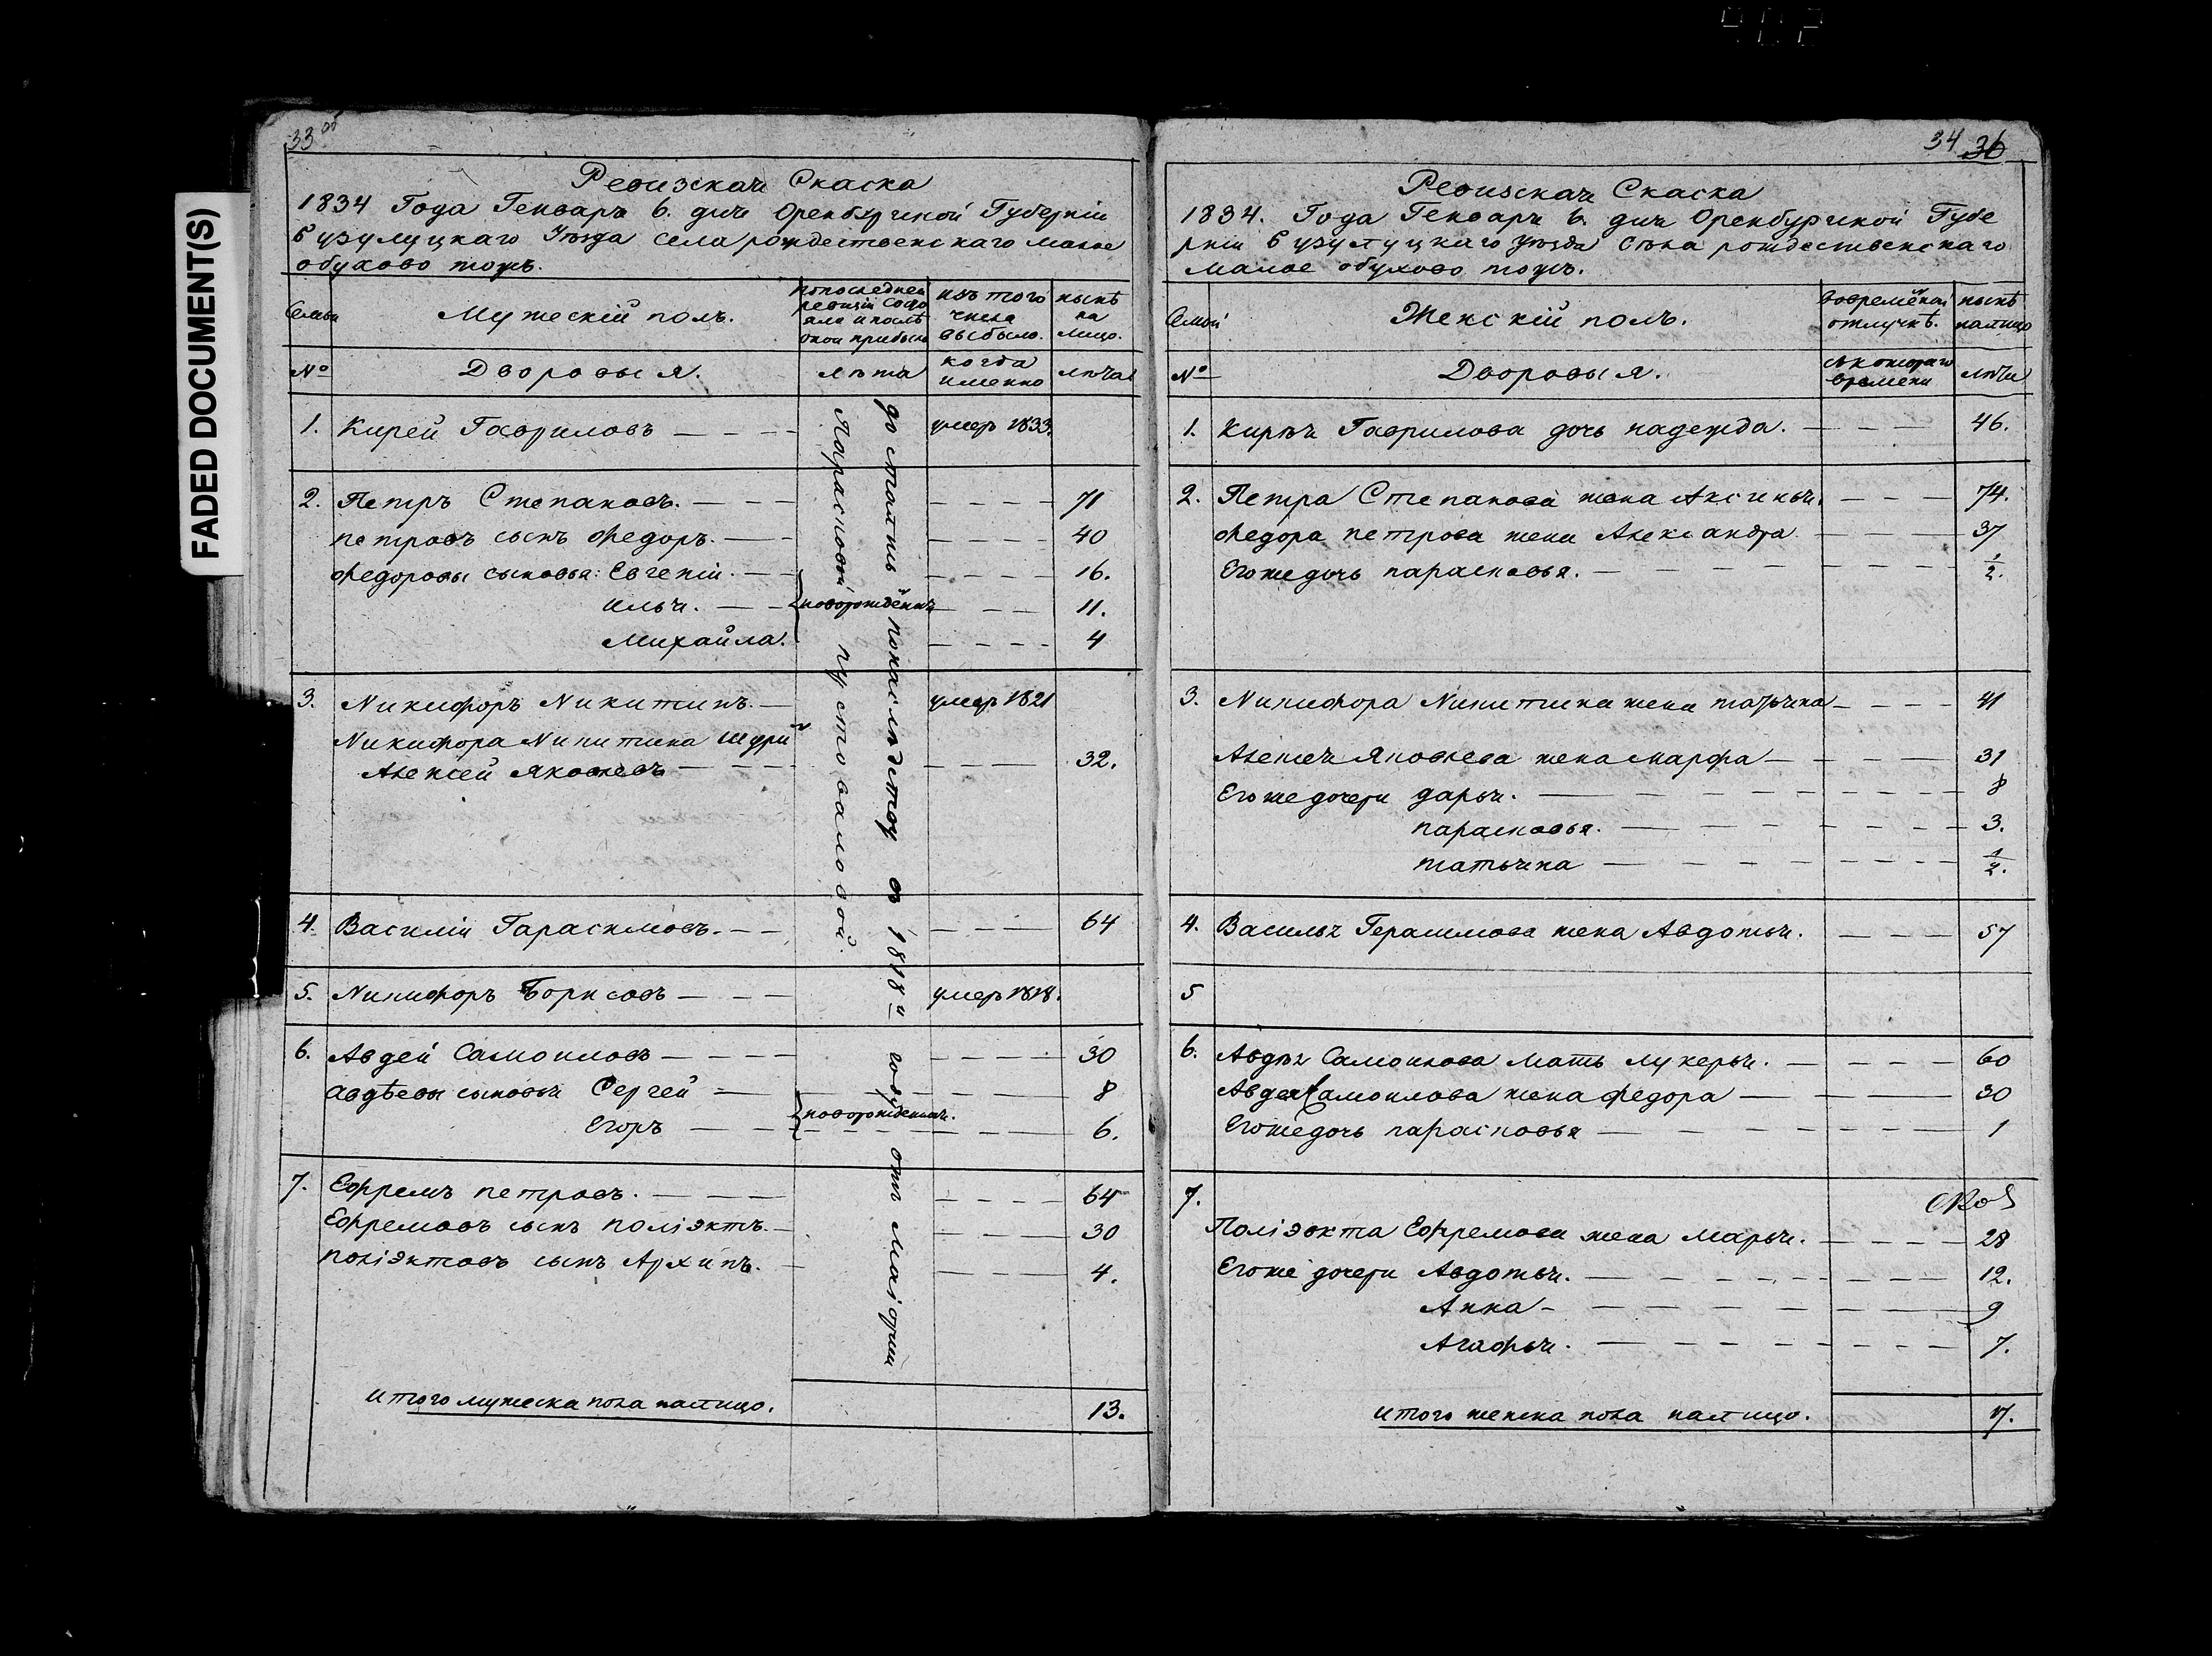 FADED DOCUMENT(S)
33 об
Ревизская Скаска
1834 Года Генваря 6. дня Оренбургской Губерніи
бузулуцкаго Уѣзда села рождественскаго малое
обухово тожъ.
Семьи
Мужескій полъ.
попоследней ревизіи состояло и послѣ оной прибыло
изъ того числа выбыло.
нынѣ на лицо.
№
Дворовыя.
лѣта
когда именно
лѣта
1. Кирей Гавриловъ — — — умер 1833.
2. Петръ Степановъ. — — — 71
петровъ сынъ Федоръ. — — 40
Федоровы сыновья: Евгеній. — — 16.
Илья. — — новорожденныя — — 11.
Михайла. — — — — 4
3. Никифоръ Никитинъ. — умер. 1821
Никифора Никитина шурин
Алексей Яковлевъ — — — 32.
4. Василіи Гарасимовъ. — — — — — 64
5. Никифоръ Борисовъ — — — умер 1818.
6. Авдей Самоиловъ — — — — 30
авдѣевы сыновья Сергей — — — 8
Егоръ — — новорожденныя. — — 6.
7. Ефремъ петровъ. — — — 64
Ефремовъ сынъ поліэктъ. — 30
поліэктовъ сынъ Архипъ. — 4.
Парасковьи пустоваловой.
достались понаследству въ 1818 м году отъ маіорши
итого мужеска пола налицо. 13.
34 36
Ревизская Скаска
1834. Года Генваря 6. дня Оренбургской Губе
рніи бузулуцкаго уѣзда села рождественскаго
малое обухово тожъ.
Семьи
Женскій полъ.
вовременной отлучкѣ.
нынѣ налицо
№
Дворовыя.
съ котораго времени
лѣта
1. Кирѣя Гаврилова дочь надежда. — — — 46.
2. Петра Степанова жена Аксинья. — — — 74.
Федора петрова жена Александра. — — — 37
Егоже дочь парасковья. — — — — 1/2.
3. Никифора Никитина жена татьяна — — — — 41
Алексея Яковлева жена марфа — — — — 31
Егоже дочери дарья. — — — — 8
парасковья. — — — — 3.
татьяна — — — — 1/2.
4. Василья Герасимова жена Авдотья. — — — 57
5
6. Авдѣя Самоилова Мать лукерья. — — — 60
Авдея Самоилова жена федора — — — 30
Егоже дочь парасковья — — — — 1
7.
Поліэвкта Ефремова жена марья. — — — — 28
Егоже дочери Авдотья. — — — — 12.
Анна — — — — — 9
Агафья. — — — — 7.
итого женска пола налицо. 17.